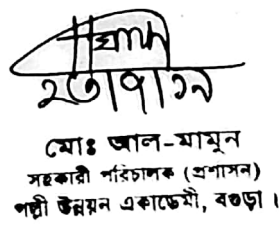 মোঃ আল-মামুন
সহকারী পরিচালক (প্রশাসন)
পল্লী উন্নয়ন একাডেমী, বগুড়া।